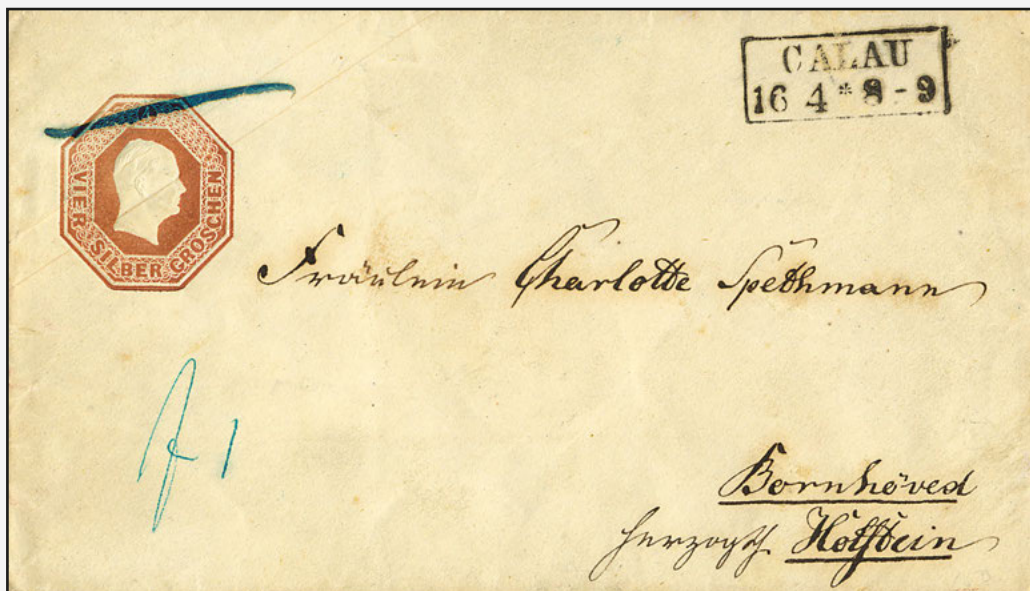 CALAU
16 4 * 8 - 9
VIER SILBER GROSCHEN
Fräulein Charlotte Spethmann
f 1
Bornhöved
herzogth. Holstein